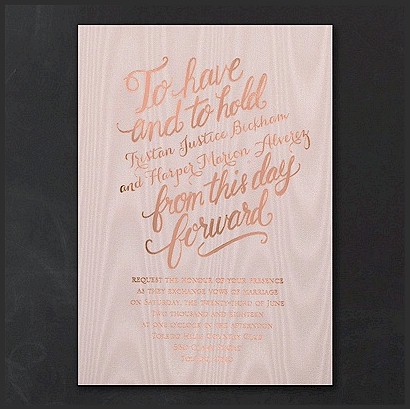 To have
and to hold
Tristan Justice Beckham
and Harper Marion Alverez
from this day
forward
REQUEST THE HONOUR OF YOUR PRESENCE
AS THEY EXCHANGE VOWS OF MARRIAGE
ON SATURDAY, THE TWENTY-THIRD OF JUNE
TWO THOUSAND AND EIGHTEEN
AT ONE O'CLOCK IN THE AFTERNOON
HILLS COUNTRY CLUB